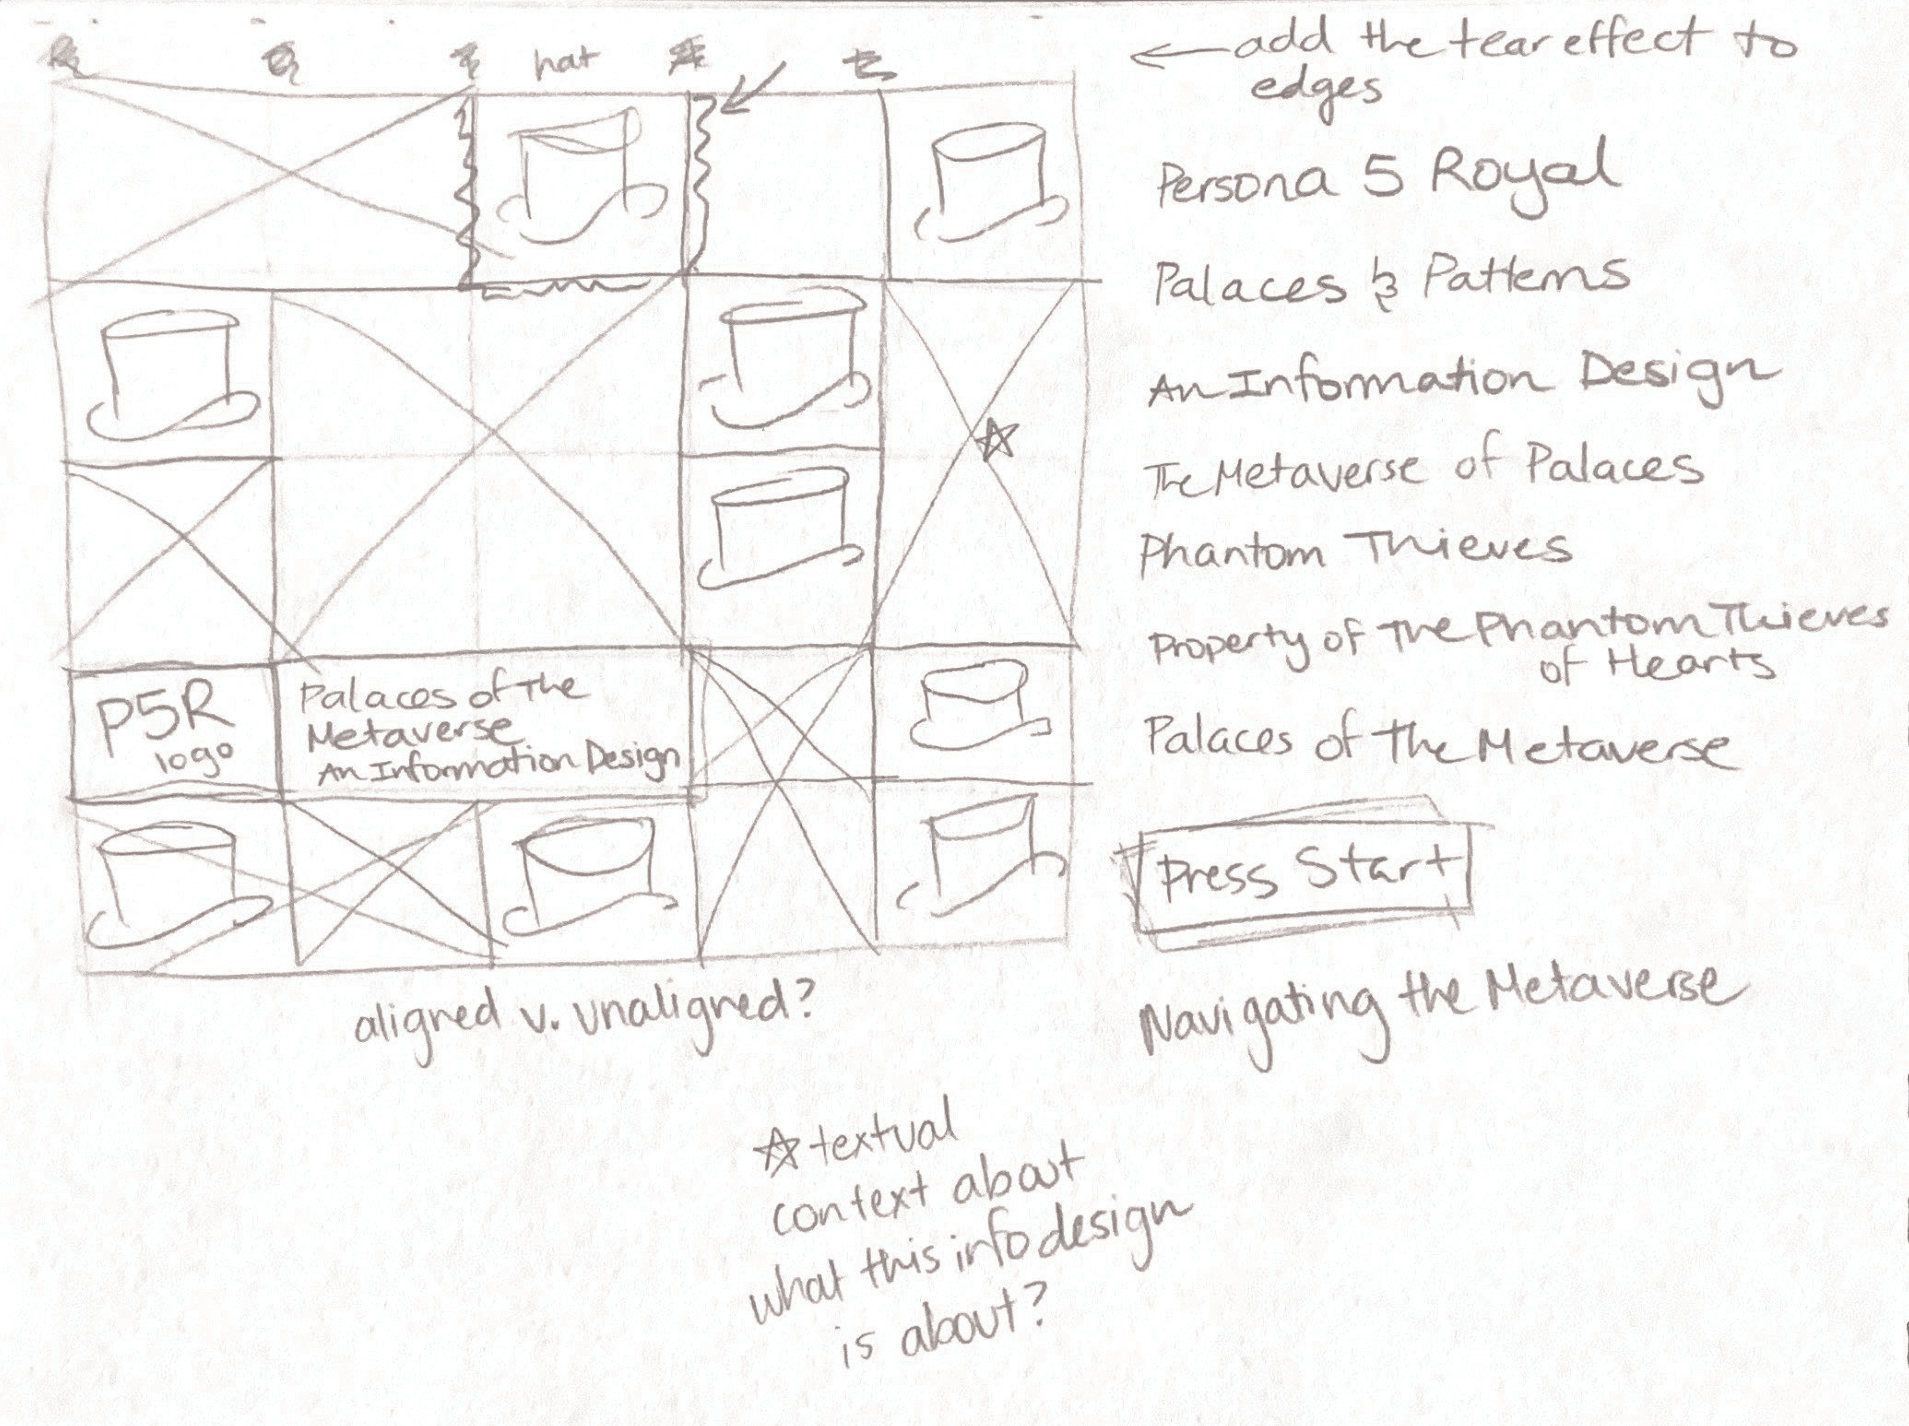 hat
← add the tear effect to
edges
Persona 5 Royal
Palaces & Patterns
An Information Design
The Metaverse of Palaces
Phantom Thieves
Property of The Phantom Thieves
of Hearts
Palaces of The Metaverse
P5R
logo
Palaces of The
Metaverse
An Information Design
Press Start
Navigating the Metaverse
aligned v. unaligned?
☆ textual
context about
what this info design
is about?